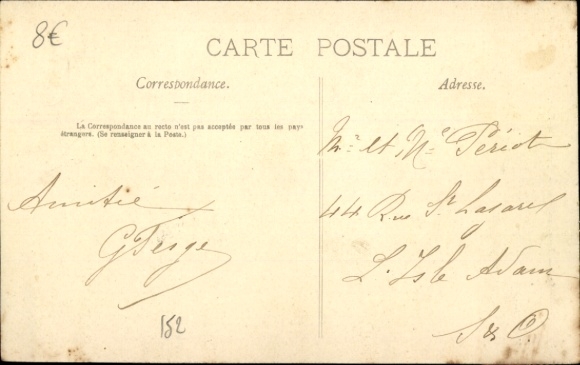 8€
CARTE POSTALE
Correspondance.
Adresse.
La Correspondance au recto n'est pas acceptée par tous les pays
étrangers. (Se renseigner à la Poste.)
Mr et Me Périot
44 Rue St Lazare
L'Isle Adam
S & O
Amitié
152